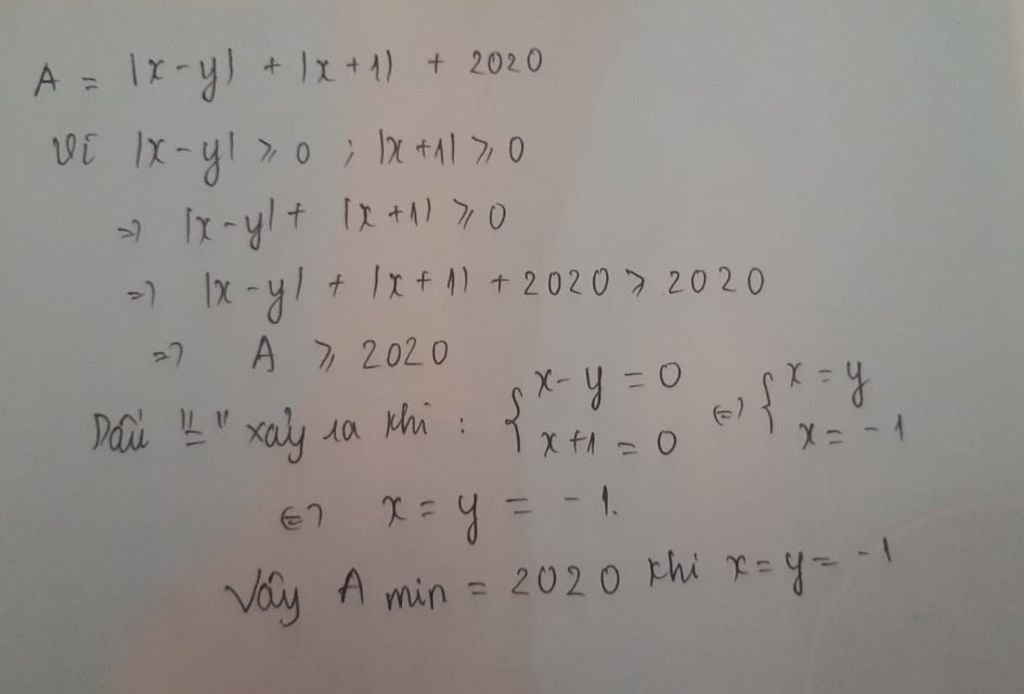 A = |x-y| + |x+1| + 2020
Vì |x-y| ⩾ 0 ; |x+1| ⩾ 0
=> |x-y| + |x+1| ⩾ 0
=> |x-y| + |x+1| + 2020 ⩾ 2020
=> A ⩾ 2020
Dấu "=" xảy ra khi : { x-y = 0 x+1 = 0 <=> { x = y x = -1
<=> x = y = -1.
Vậy A min = 2020 khi x = y = -1